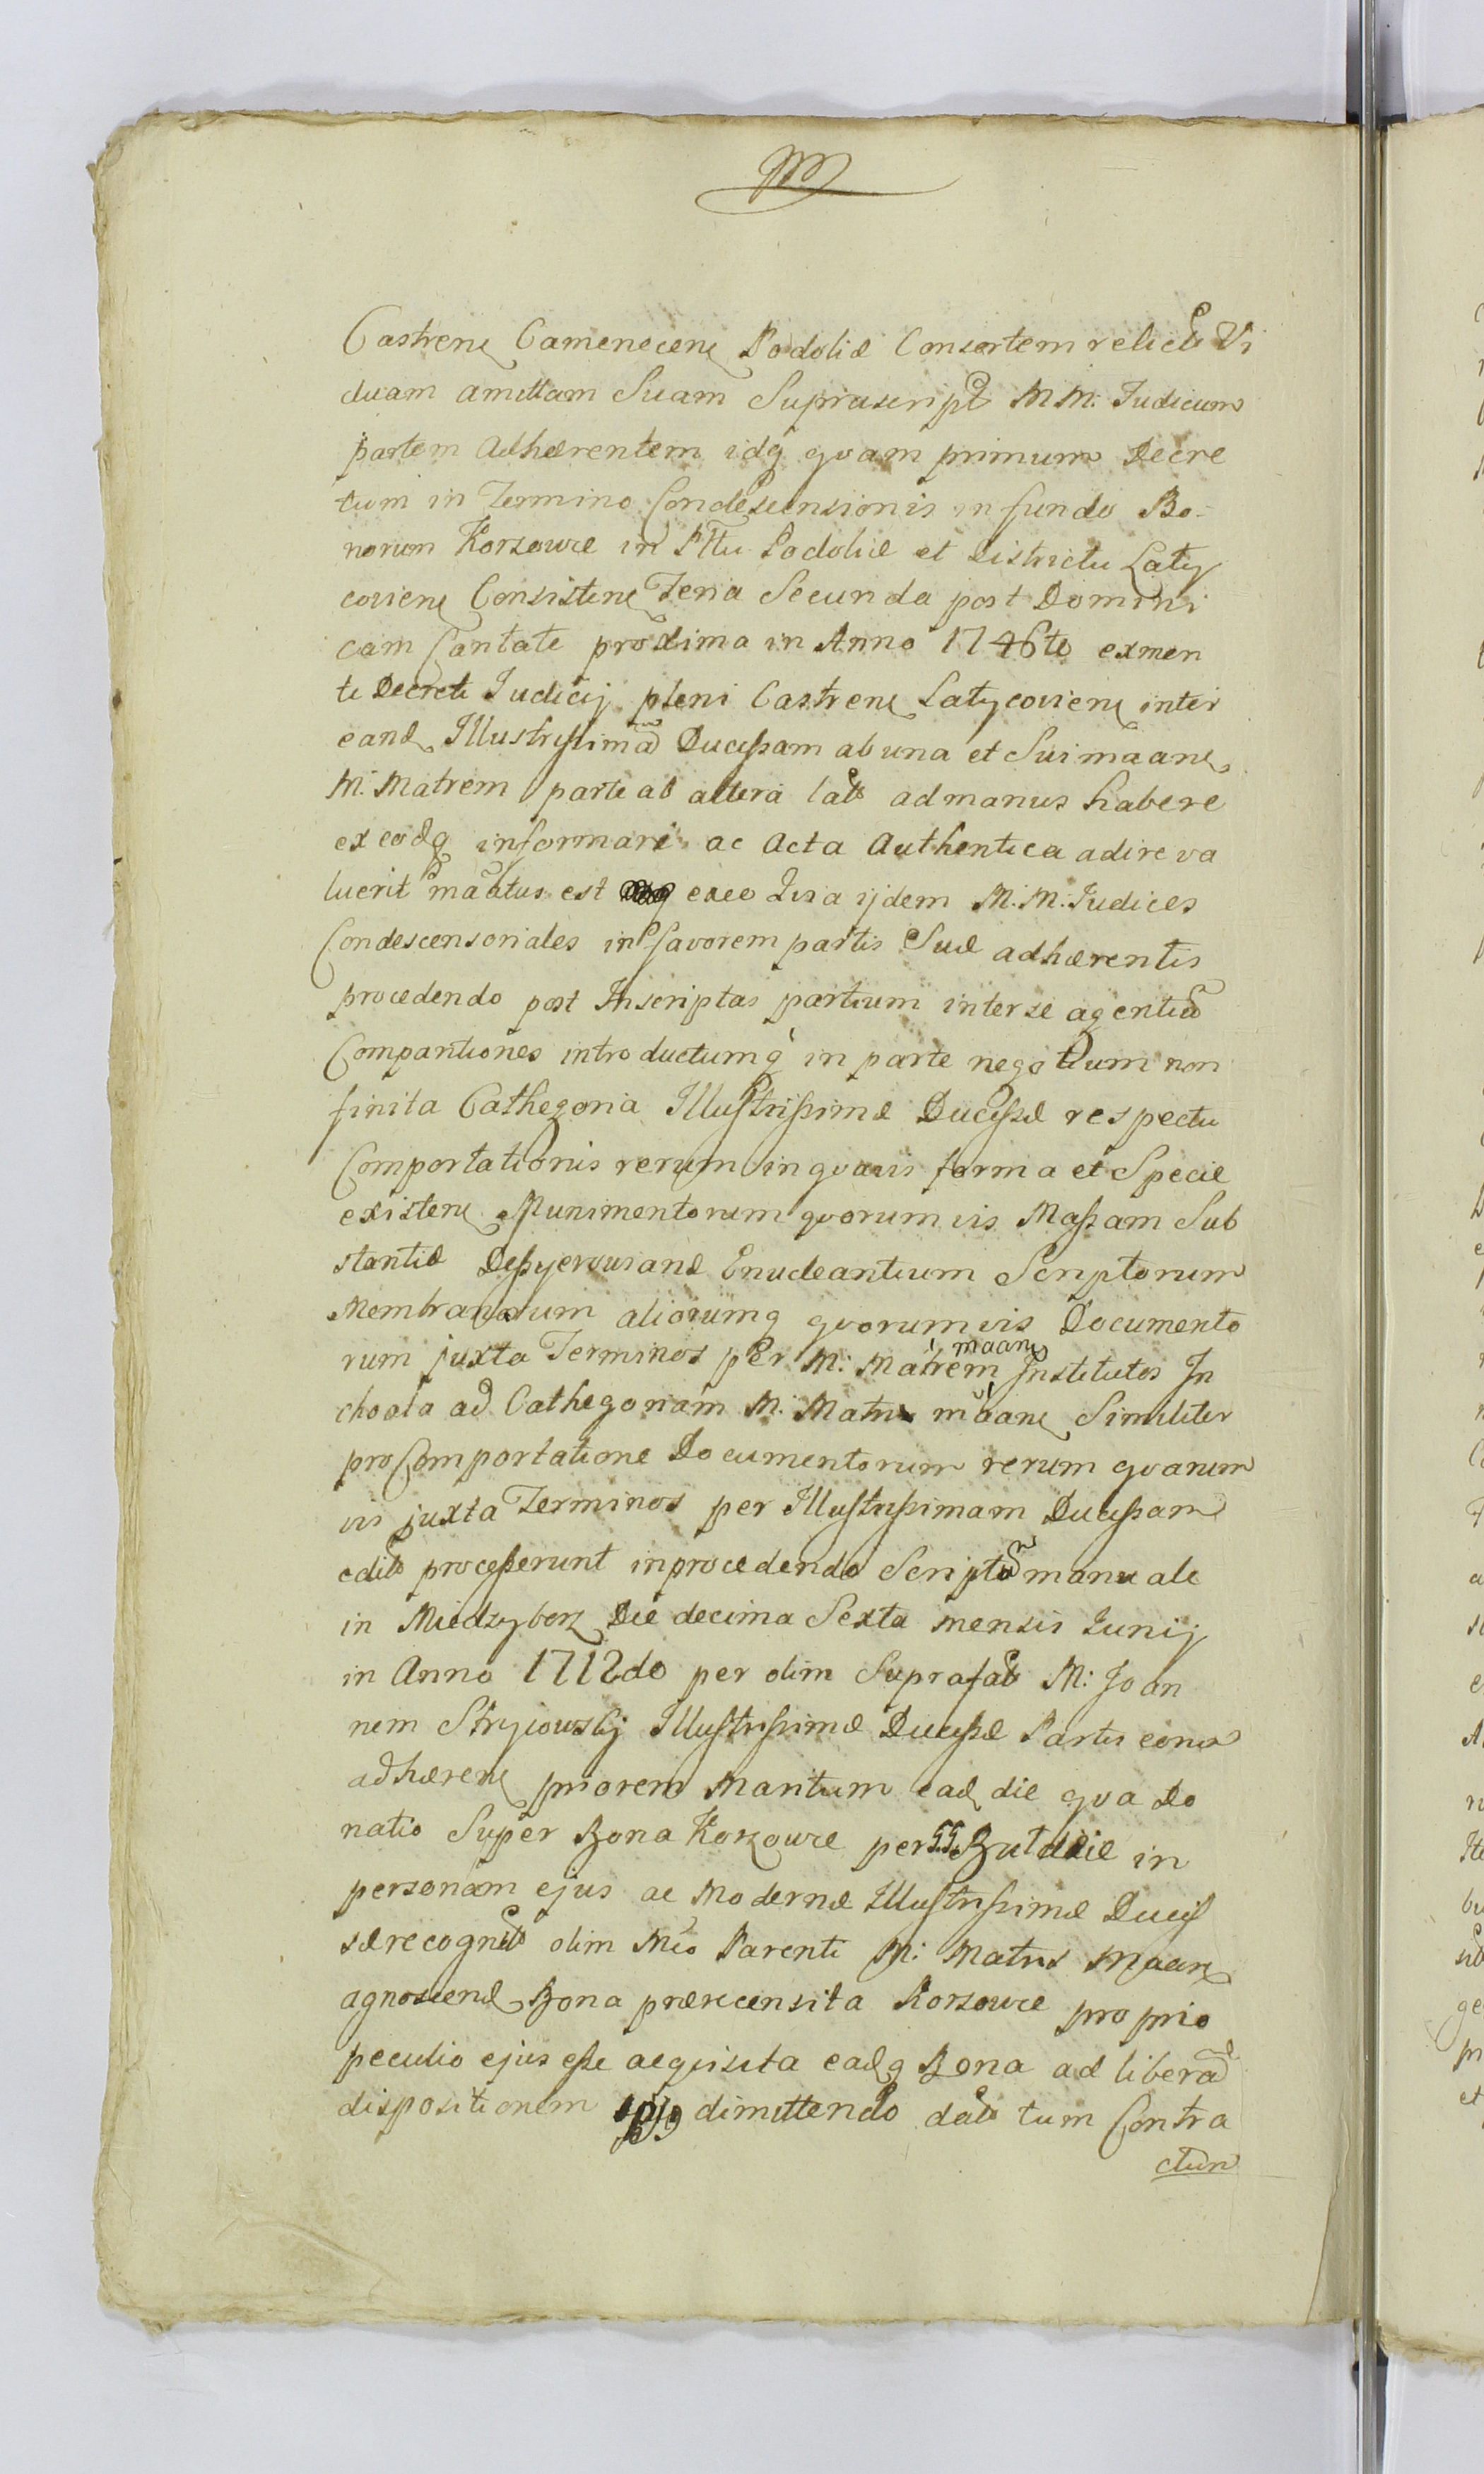 Castrenȩ Camenecenȩ Podoliæ Consortem relict Vi
duam amittam Suam Suprascript M M: Judicum
partem Adhærentem idq quam primum Decre
tum in Termino Condescensionis in fundo Bo-
norum Korzowce in Pttu Podoliæ et Districtu Laty
coviens Consistenȩ Feria Secunda post Domini
cam Cantate proxima in Anno 1746to exmen
te Decreti Judicij pleni Castrenȩ Latycovienȩ inter
eand Illustrissimã Ducissam ab una et Sui maanȩ
M: Matrem parte ab altera lat ad manus habere
ex eodq informari ac Acta Authentica adire va
luerit est ijdem M: M: Judices
Condescensoriales in favorem partis Suæ adhærentis
procedendo post Inscriptas partium inter se agentiũ
Comparitiones introductumq in parte negotium non
finita Cathegoria Illustrissimæ Ducissæ respectu
Comportationis rerum in quavis forma et Specie
existenȩ Munimentorum quorumvis Massam Sub
stantiæ Enucleantium Scriptorum
Membranarum aliorumq quorumvis Documento
rum juxta Terminos per M: Matrem maanȩ Institutos In
choata ad Cathegoriam M: Matris maanȩ Similiter
pro Comportatione Documentorum rerum quarum
vis juxta Terminos per Illustrissimam Ducissam
edit processerunt in procedendo Scriptũ manuale
in Miedzyborz Die decima Sexta mensis Junij
in Anno 1712do per olim Suprafat M: Joan
nem Stryiowskij Illustrissimæ Ducissæ Partis eorum
adhærenȩ priorem Maritum ead die qua Do
natio Super Bona Korzowce per in
personam ejus ac Modernæ Illustrissimæ Ducis
sæ recognit olim Mco Parenti M: Matris Maanȩ
agnoscend Bona præcensita Korzowce proprio
peculio ejus esse acquisita eadq Bona ad liberã
dispositionem dimittendo dat tum Contra
ctum